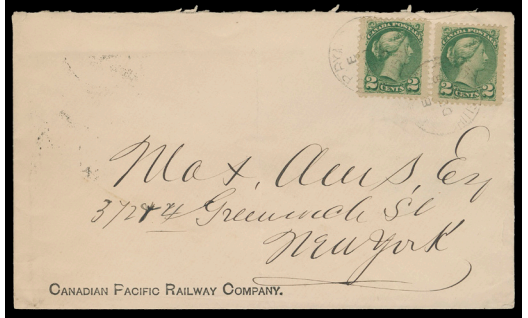 CANADA POSTAGE CANADA POSTAGE
2 CENTS 2 2 CENTS 2
Max, Ams, Esq
372 & 4 Greenwich St
New York
CANADIAN PACIFIC RAILWAY COMPANY.